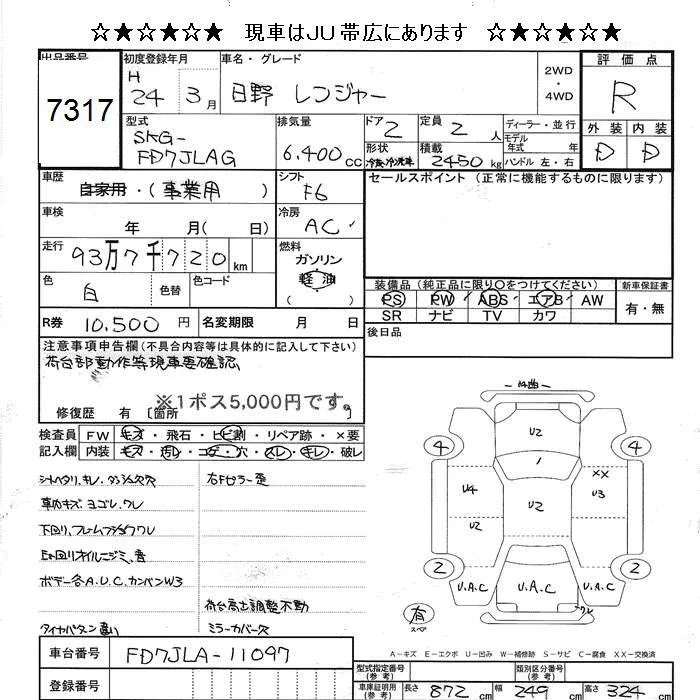 ☆★☆★☆★☆ 現車はJU帯広にあります ☆★☆★☆★☆
出品番号
7317
初度登録年月
H 24 3月
車名・グレード
日野 レンジャー
2WD
・
4WD
評価点
R
外装 内装
D D
型式
SKG-
FD7JLAG
排気量
6,400 cc
ドア 2
定員 2 人
形状
積載
2450 kg
ディーラー・並行
モデル
年式 年
ハンドル 左・右
車歴
自家用・(事業用)
シフト
F6
セールスポイント (正常に機能するものに限ります)
車検
年 月( 日)
冷房
AC
走行
93万7千720 km
燃料
ガソリン
軽油
( )
色
白
色替
色コード
装備品(純正品に限り〇をつけてください)
新車保証書
PS PW ABS エアB AW
SR ナビ TV カワ
有・無
R券 10,500 円
名変期限 月 日
後日品
注意事項申告欄(不具合内容等は具体的に記入して下さい)
荷台部動作等現車要確認
※1ポス5,000円です。
修復歴 有 〔箇所 〕
検査員
記入欄
FW キズ・飛石・ヒビ割・リペア跡・×要
内装 キズ・汚レ・コゲ・穴・スレ・キレ・破レ
シートヘタリ、キレ、
車内キズ、ヨゴレ、ワレ
下回り、フレーム
オイルニジミ、
ボデー各A.U.C.
W3
タイヤパタン違い
右Fピラー歪
荷台高さ調整不動
ミラーカバー欠
曲
U2
4
4
××
U4
U3
U2
U2
2
2
U.A.C
U.A.C
U.A.C
ワレ
有
スペア
A-キズ E-エクボ U-凹み W-補修跡 S-サビ C-腐食 XX-交換済
車台番号
FD7JLA-11097
登録番号
型式指定番号
(参考)
類別区分番号
(参考)
車庫証明用
(参考)
長さ 872 cm
幅 249 cm
高さ 324 cm